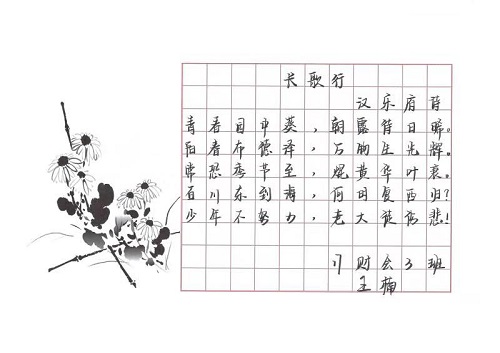 长歌行
汉乐府诗
青春园中葵，朝露待日晞。
阳春布德泽，万物生光辉。
常恐秋节至，焜黄华叶衰。
百川东到海，何时复西归？
少年不努力，老大徒伤悲！
17财会3班
王楠